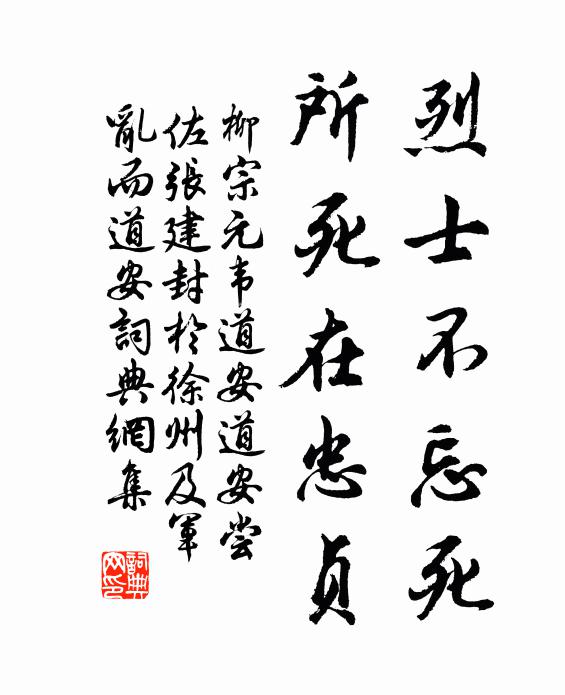 烈士不忘死
所死在忠貞
柳宗元韦道安道安尝
佐張建封於徐州及军
亂而道安詞典網集
詞典
网印